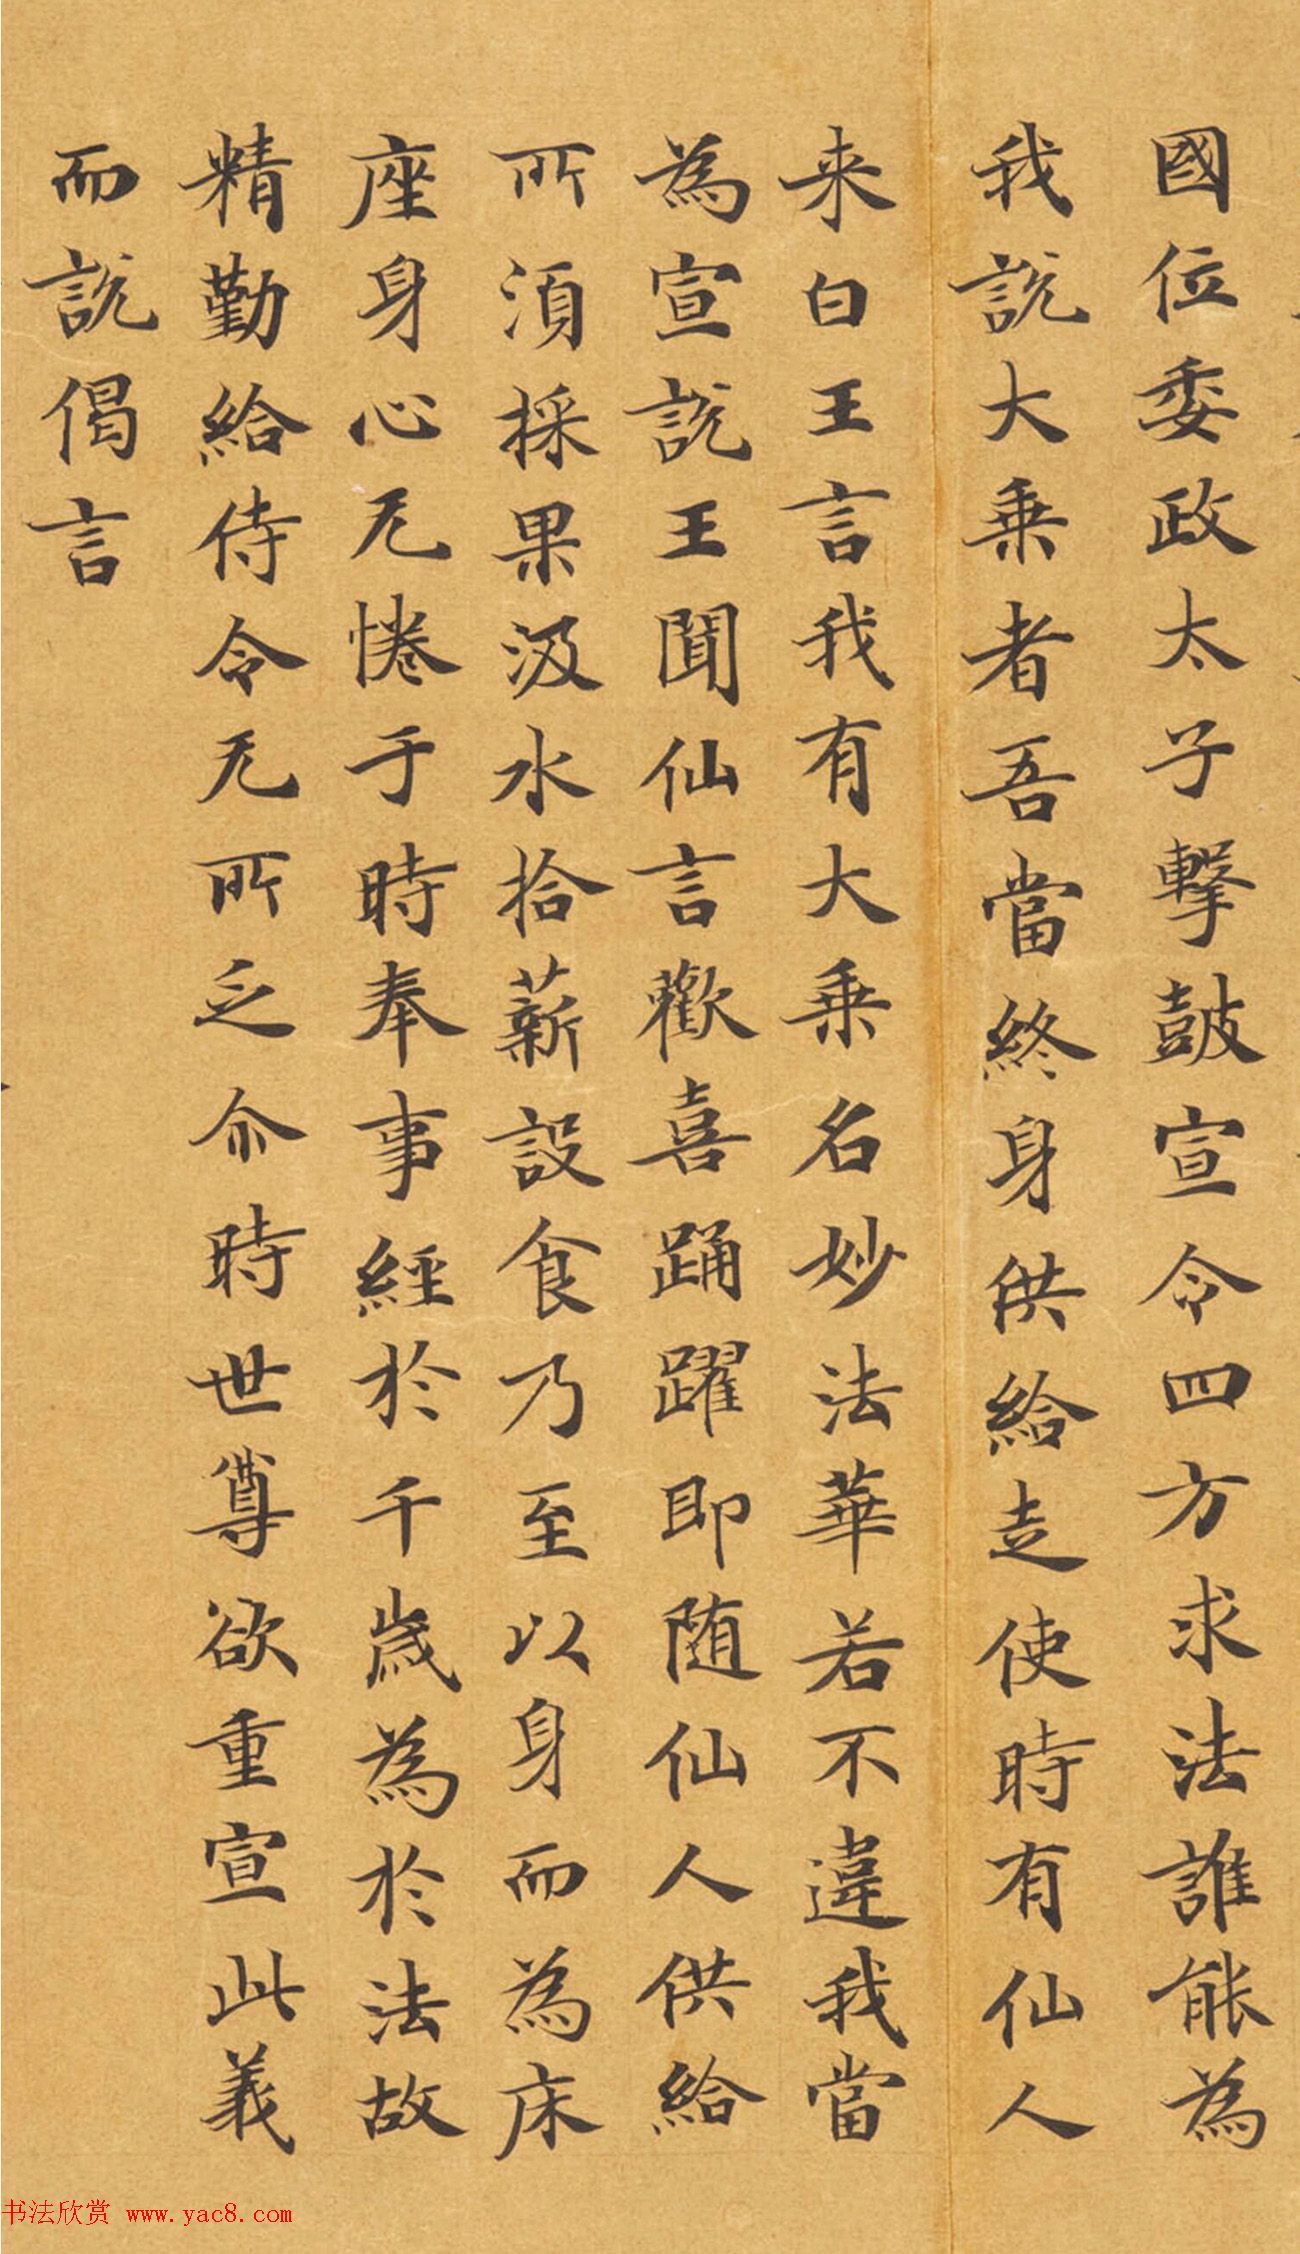 國位委政太子擊皷宣令四方求法誰能為
我說大乗者吾當終身供給走使時有仙人
来白王言我有大乗名妙法華若不違我當
為宣說王聞仙言歡喜踊躍即随仙人供給
所湏採果汲水拾薪設食乃至以身而為床
座身心无惓于時奉事經於千歳為於法故
精勤給侍令无所乏尒時世尊欲重宣此義
而說偈言
书法欣赏 www.yac8.com